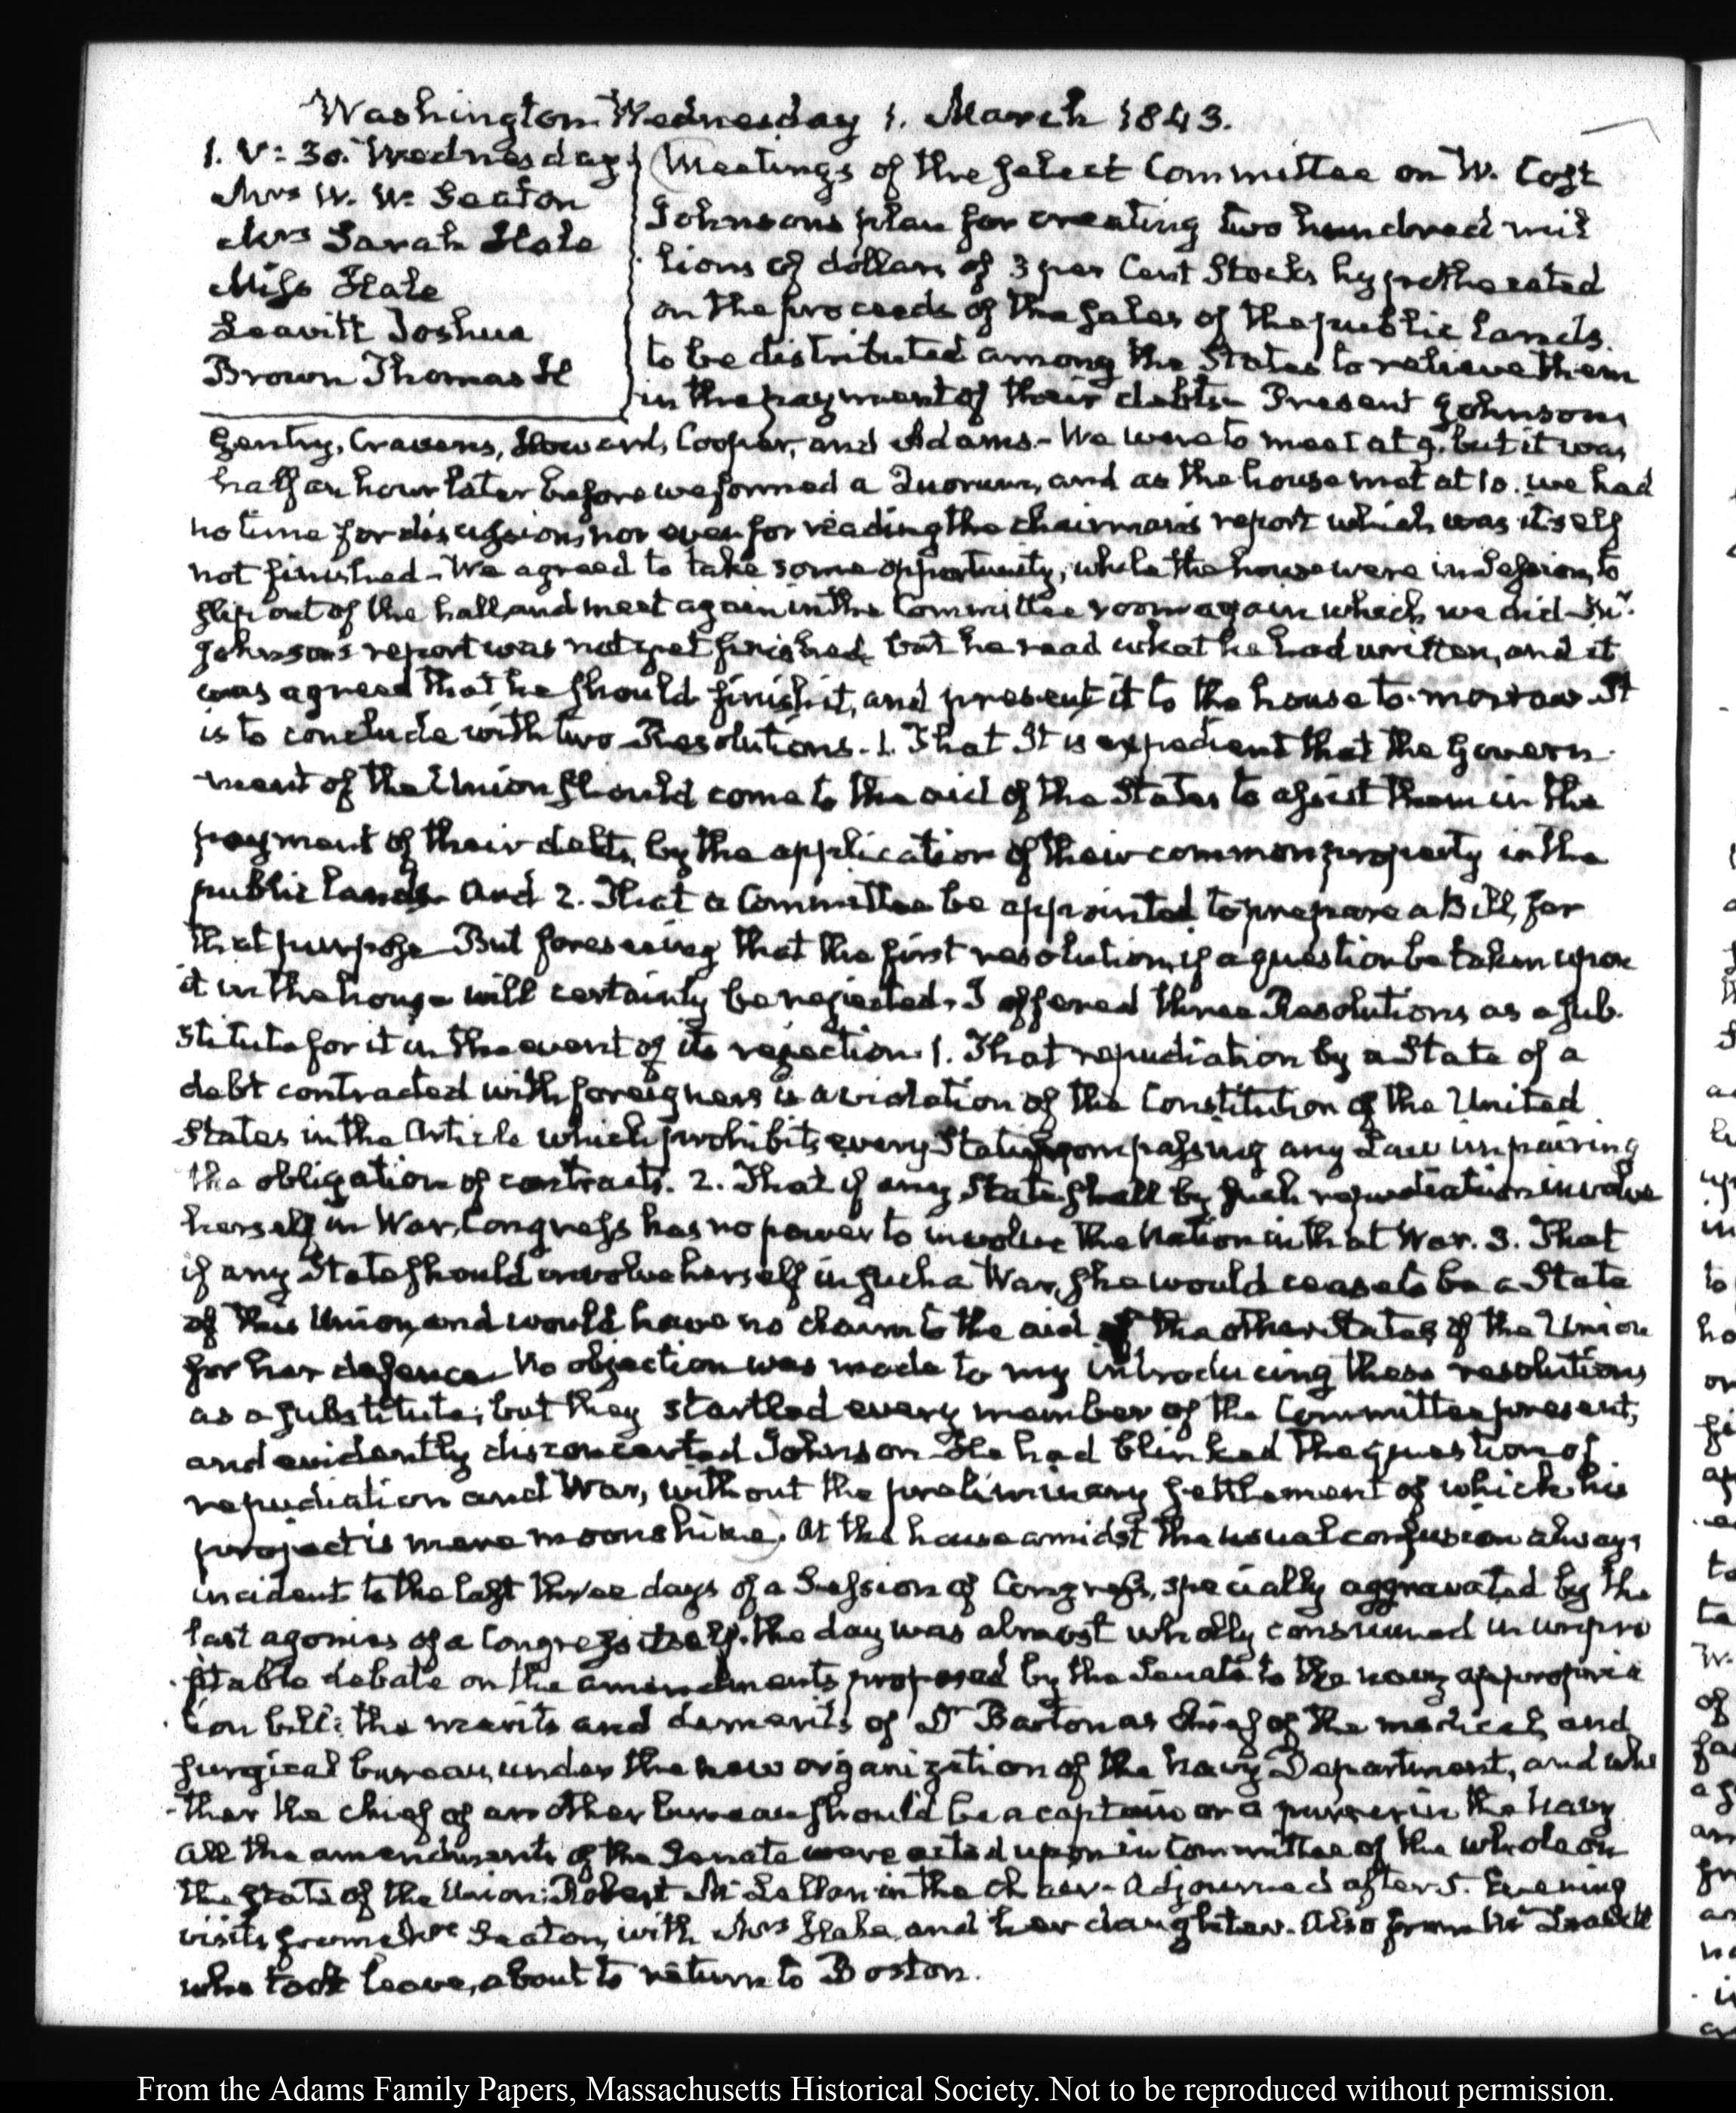 Washington Wednesday 1. March 1843.
1. V: 30. Wednesday
Mrs W. W. Seaton
Mrs Sarah Hale
Miss Hale
Leavitt Joshua
Brown Thomas H
Meetings of the select Committee on W. Cost
Johnsons plan for creating two hundred mil
lions of dollars of 3 per Cent Stocks hypothecated
on the proceeds of the sales of the public lands.
to be distributed among the States to relieve them
in the payment of their debts. Present Johnson,
Gentry, Cravens, Howard, Cooper, and Adams. We were to meet at 9. but it was
half an hour later before we formed a Quorum, and as the house met at 10. we had
no time for discussion, nor even for reading the chairman's report which was itself
not finished. We agreed to take some opportunity, while the house were in Session, to
slip out of the hall, and meet again in the Committee room again which we did. Mr
Johnsons report was not yet finished, but he read what he had written, and it
was agreed that he should finish it, and present it to the house to-morrow. It
is to conclude with two Resolutions. 1. That It is expedient that the Govern
ment of the Union should come to the aid of the States to assist them in the
payment of their debts, by the application of their common property in the
public lands. And 2. That a Committee be appointed to prepare a Bill, for
that purpose. But foreseeing that the first resolution, if a question be taken upon
it in the house will certainly be rejected, I offered three Resolutions as a sub-
stitute for it in the event of its rejection. 1. That repudiation by a State of a
debt contracted with foreigners is a violation of the Constitution of the United
States in the Article which prohibits every State from passing any Law impairing
the obligation of contracts. 2. That if any State shall by such repudiation involve
herself in War, Congress has no power to involve the Nation in that War. 3. That
if any State should involve herself in such a War, she would cease to be a State
of this Union, and would have no claim to the aid of the other States of the Union
for her defence. No objection was made to my introducing these resolutions
as a substitute; but they startled every member of the Committee present;
and evidently disconcerted Johnson. He had blinked the question of
repudiation and War, without the preliminary settlement of which his
project is mere moonshine. At the house amidst the usual confusion always
incident to the last three days of a Session of Congress, specially aggravated by the
last agonies of a Congress itself. the day was almost wholly consumed in unpro
fitable debate on the amendments proposed by the Senate to the navy appropria
tion bill: the merits and demerits of Dr Barton as chief of the medical and
surgical bureau, under the new organization of the Navy Department, and whe
ther the chief of another bureau should be a captain or a purser in the Navy
All the amendments of the Senate were acted upon in Committee of the whole on
the State of the Union: Robert McLellan in the chair. Adjourned after 5. Evening
visits from Mrs Seaton, with Mrs Hale, and her daughter. Also from Mr Leavitt
who took leave, about to return to Boston.
From the Adams Family Papers, Massachusetts Historical Society. Not to be reproduced without permission.